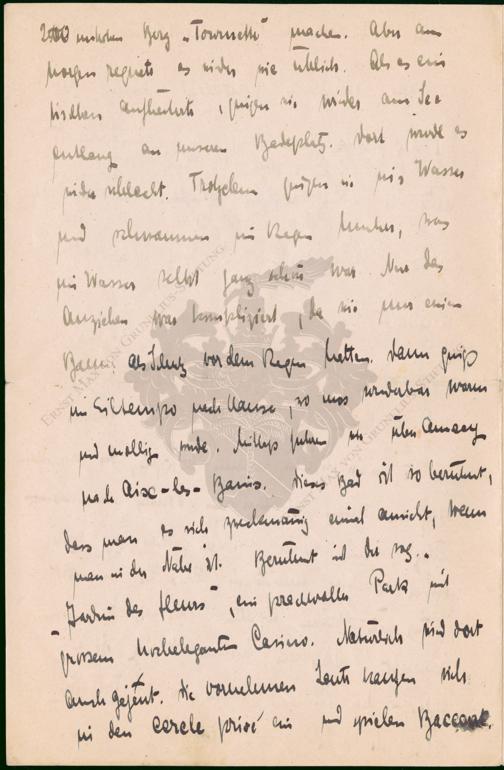 2400 m hohen Berg "Tournette" machen. Aber am
morgen regnete es wieder wie üblich. Als es ein
bisschen aufheiterte, gingen wir wieder am See
entlang an unseren Badeplatz. Dort wurde es
wieder schlecht. Trotzdem gingen wir ins Wasser
und schwammen im Regen herum, was
im Wasser selbst ganz schön war. Nur das
Anziehen war kompliziert, da wir nur einen
Baum als Schutz vor dem Regen hatten. Dann gings
im Eiltempo nach Hause, wo uns wunderbar warm
und mollig wurde. Mittags fuhren wir über Annecy
nach Aix-les-Bains. Dieses Bad ist so berühmt,
dass man es sich zwecksmässig einmal ansieht, wenn
man in der Nähe ist. Berühmt ist der sog.
"Jardin des fleurs", ein prachtvoller Park mit
grossem hochelegantem Casino. Natürlich wird dort
auch gejeut. Die vornehmen Leute hängen sich
in den cercle privé ein und spielen Baccarat.
ERNST MAX VON GRUNELIUS-STIFTUNG
ERNST MAX VON GRUNELIUS-STIFTUNG